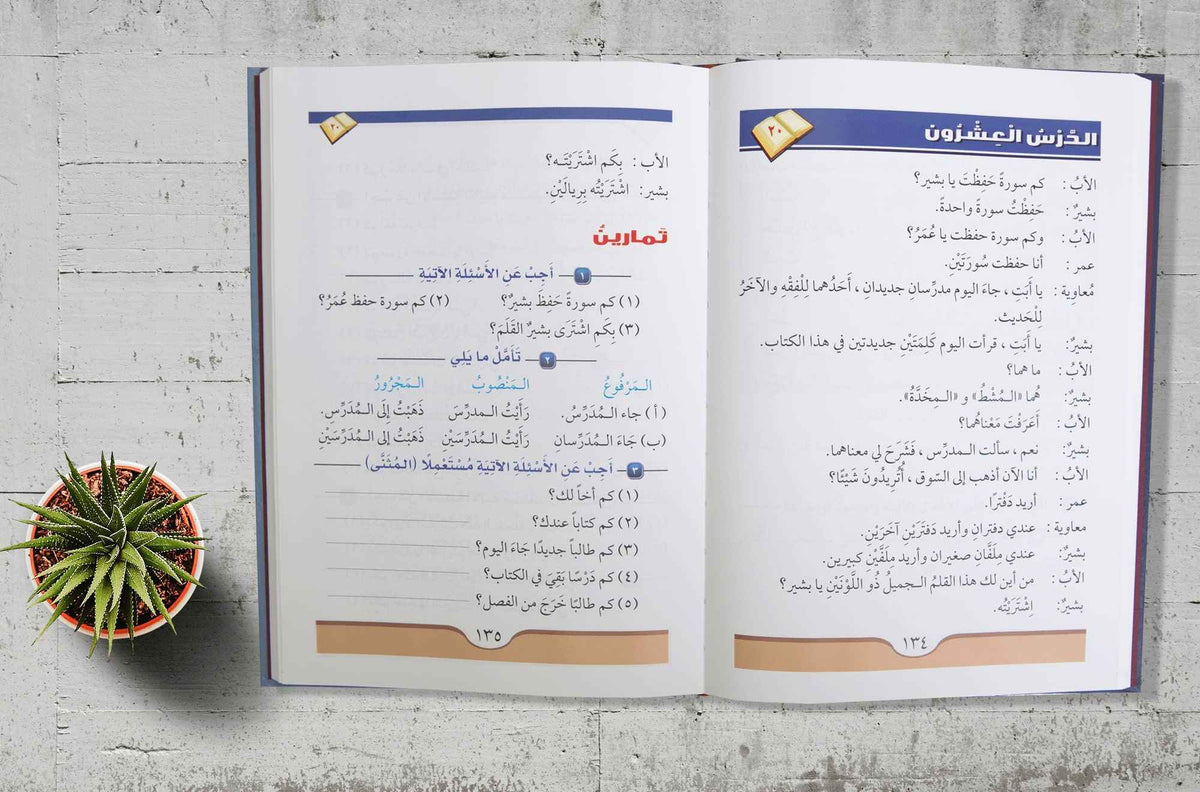 الدَّرْسُ الْعِشْرُونَ
٢٠
الأبُ : كم سورةً حَفِظْتَ يا بشير؟
بشيرٌ : حَفِظْتُ سورةً واحدةً.
الأبُ : وكم سورة حفظت يا عُمَرُ؟
عمر : أنا حفظت سُورَتَيْنِ.
مُعاوية : يا أَبَتِ ، جاءَ اليوم مدرِّسانِ جديدانِ ، أَحَدُهما لِلْفِقْهِ والآخَرُ
لِلْحَديث.
بشيرٌ: يا أَبَتِ ، قرأت اليوم كَلِمَتَيْنِ جديدتين في هذا الكتاب.
الأبُ : ما هما؟
بشيرٌ: هُما «الـمُشْطُ» و «الـمِخَدَّةُ».
الأبُ : أَعَرَفْتَ مَعْناهُما؟
بشيرٌ: نعم ، سألت الـمدرِّس ، فَشَرَحَ لي معناهما.
الأبُ : أنا الآن أذهب إلى السّوق ، أَتُرِيدُونَ شَيْئًا؟
عمر : أريد دَفْتَرًا.
معاوية : عندي دفترانِ وأريد دَفتَرَيْنِ آخَرَيْنِ.
بشيرٌ: عندي مِلَفَّانِ صغيران وأريد مِلَفَّيْنِ كبيرين.
الأبُ : من أين لك هذا القلمُ الـجميلُ ذُو اللَّوْنَيْنِ يا بشير؟
بشيرٌ: اِشْتَرَيْتُه.
١٣٤
٢٠
الأب : بِكَم اشْتَرَيْتَـه؟
بشير: اشْتَرَيْتُه بِرِيالَيْنِ.
تَمارينُ
١ أَجِبْ عَنِ الأَسْئِلَةِ الآتِيَةِ
(١) كم سورةً حَفِظَ بشيرٌ؟ (٢) كم سورة حفظ عُمَرُ؟
(٣) بِكَمِ اشْتَرَى بشيرٌ القَلَمَ؟
٢ تَأَمَّلْ ما يَلِي
الـمَرْفُوعُ الـمَنْصُوبُ الـمَجْرُورُ
(أ) جاء الـمُدَرِّسُ. رَأَيْتُ الـمدرسَ ذَهَبْتُ إِلَى الـمُدَرِّسِ.
(ب) جَاءَ الـمُدَرِّسانِ رَأَيْتُ الـمُدَرِّسَيْنِ ذَهَبْتُ إِلَى الـمُدَرِّسَيْنِ
٣ أَجِبْ عَنِ الأَسْئِلَةِ الآتِيَةِ مُسْتَعْمِلًا (الـمُثَنَّى)
(١) كم أخاً لك؟
(٢) كم كتاباً عندك؟
(٣) كم طالباً جديدًا جَاءَ اليوم؟
(٤) كم دَرْسًا بَقِيَ في الكتاب؟
(٥) كم طالبًا خَرَجَ من الفصل؟
١٣٥